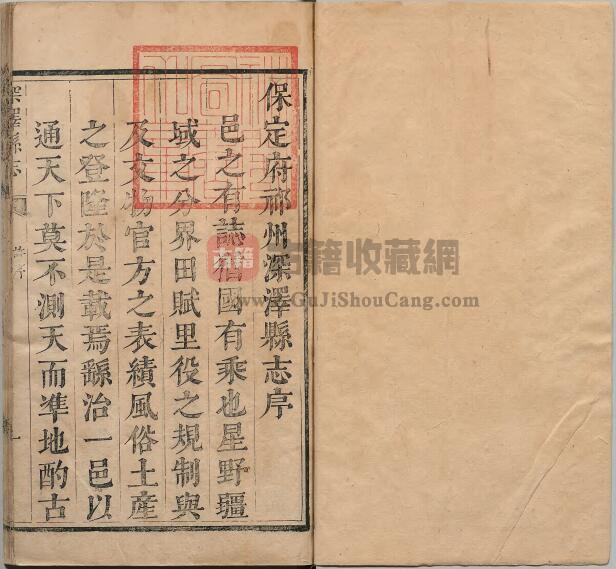 保定府祁州深澤縣志序
邑之有誌猶國有乘也星野疆
域之分界田賦里役之規制與
及文物官方之表績風俗土產
之登隆於是載焉繇治一邑以
通天下莫不測天而準地酌古
深澤縣志
序
古籍
古籍收藏網
www.GuJiShouCang.com